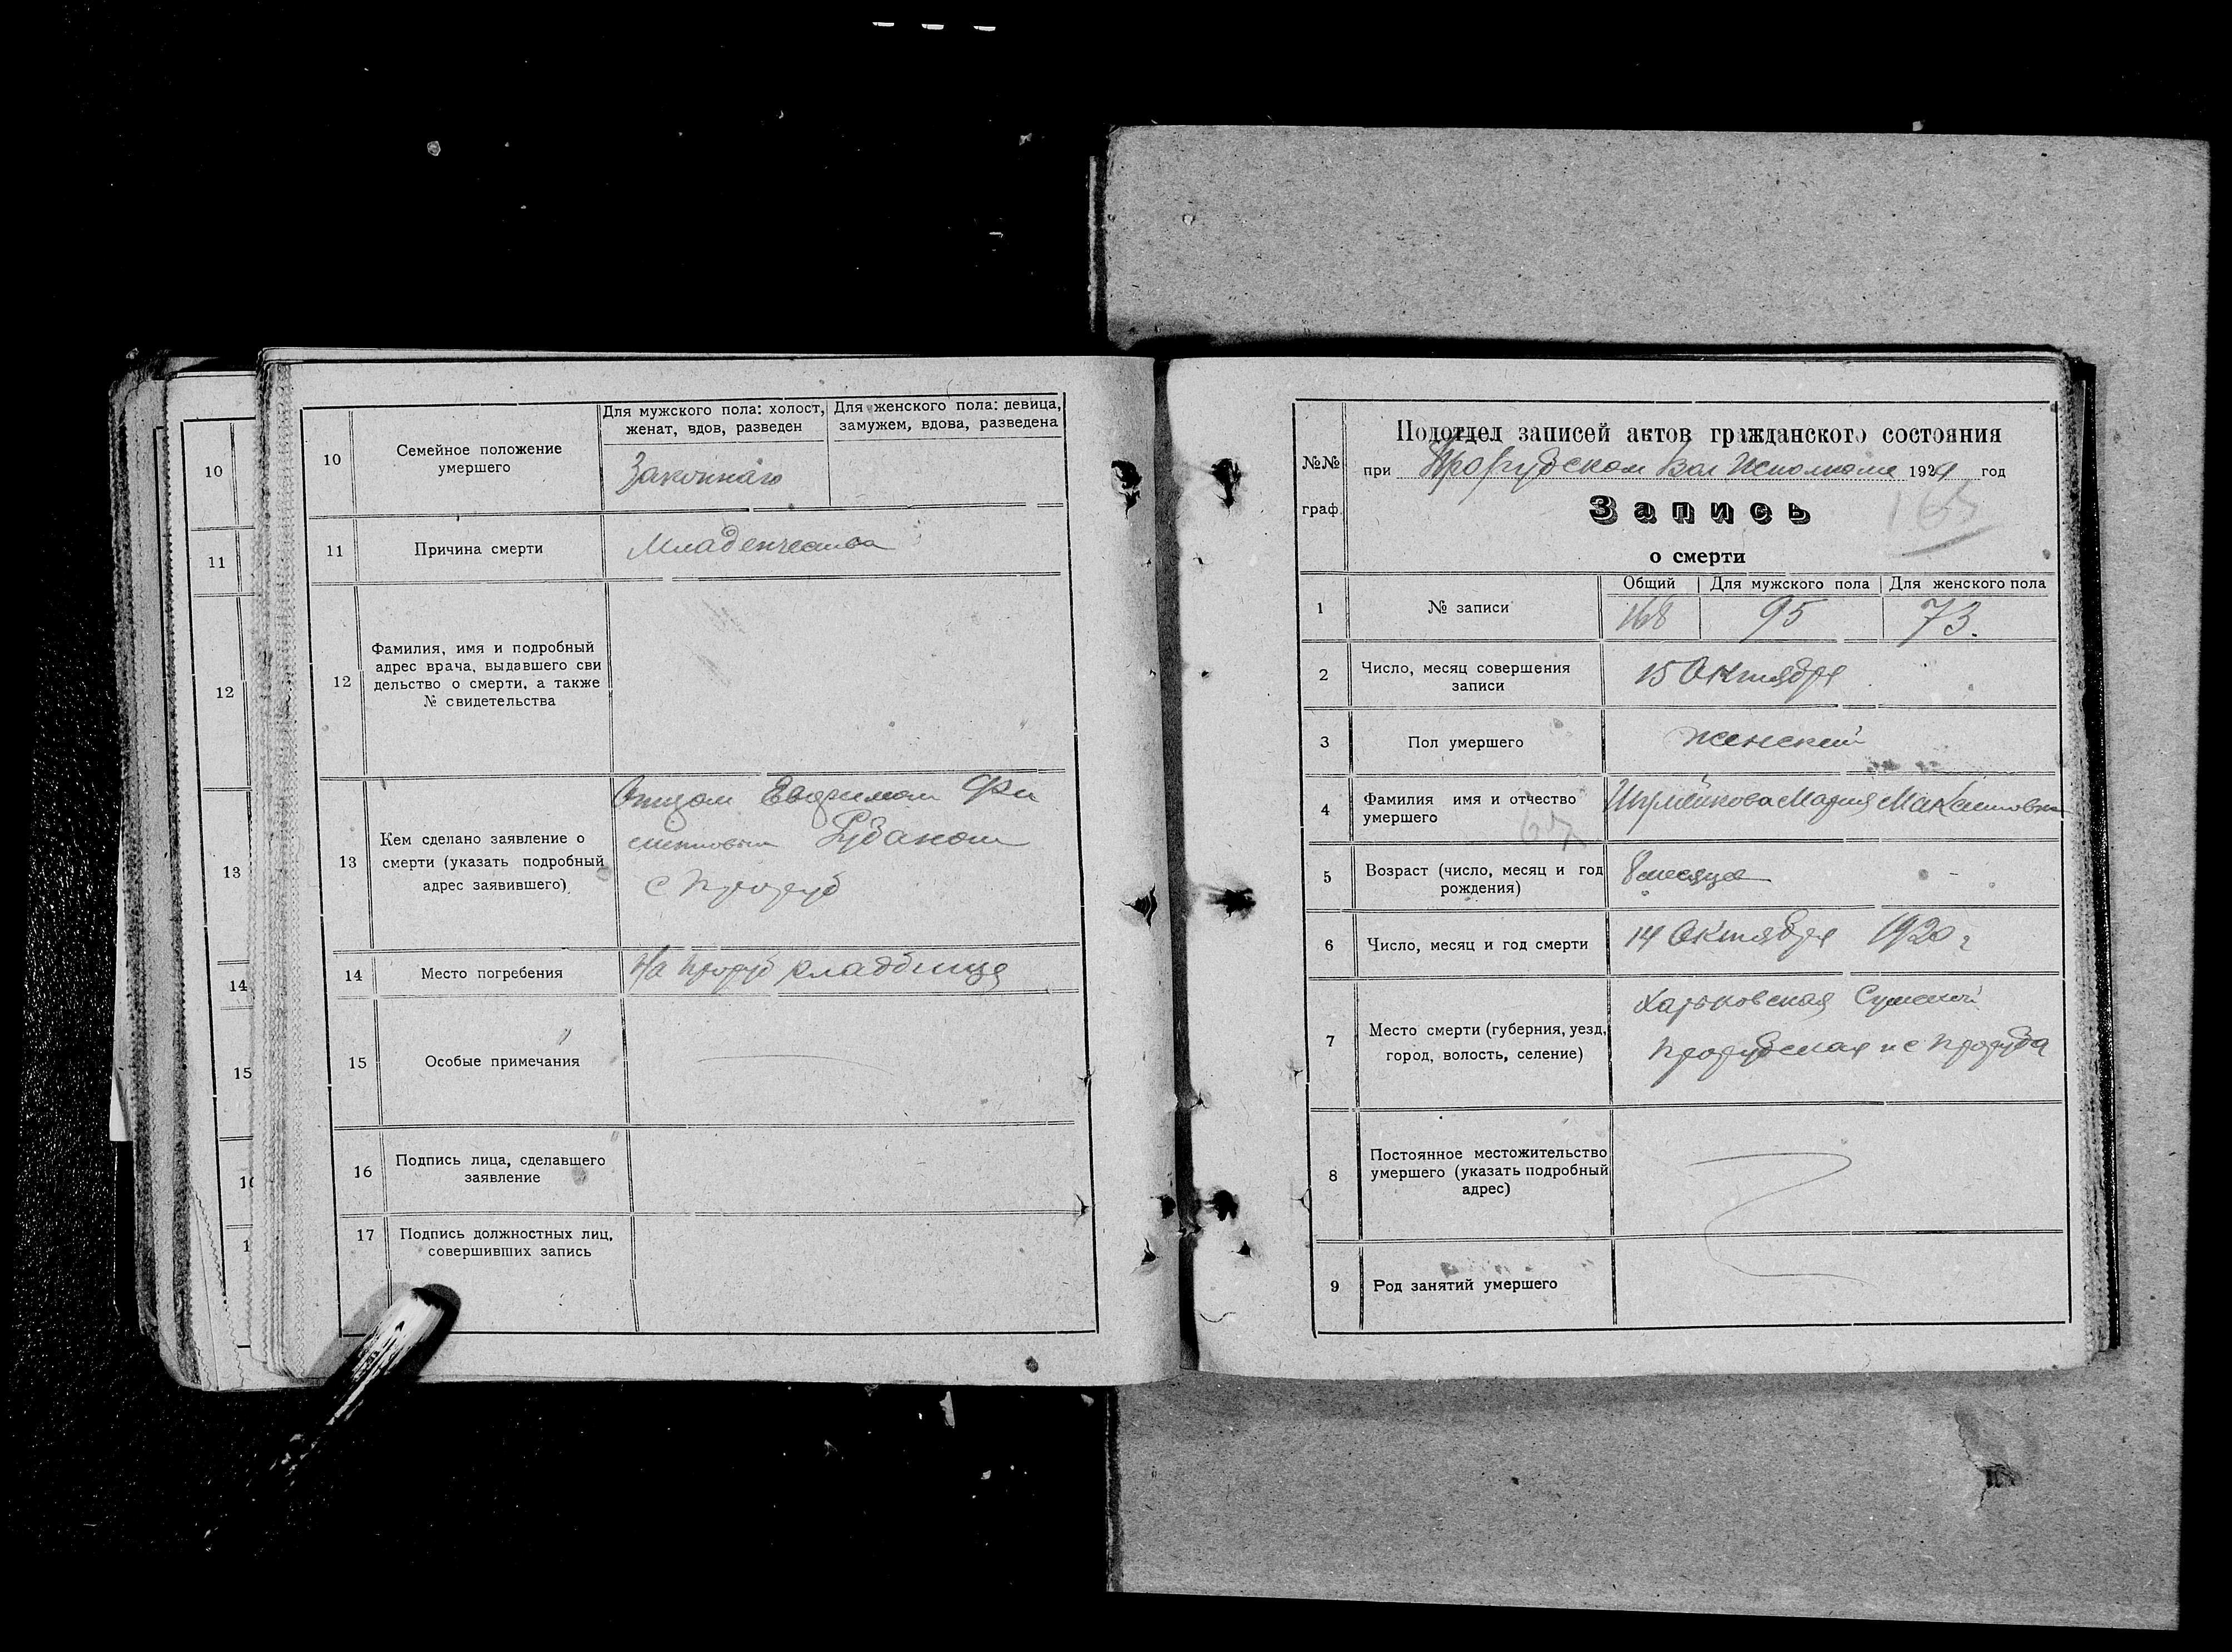 10
11
12
13
14
15
10
Семейное положение
умершего
Для мужского пола: холост,
женат, вдов, разведен
Для женского пола: девица,
замужем, вдова, разведена
Законнаго
11
Причина смерти
Младенчества
12
Фамилия, имя и подробный
адрес врача, выдавшего сви
дельство о смерти, а также
№ свидетельства
13
Кем сделано заявление о
смерти (указать подробный
адрес заявившего)
Отцом Евфимом
Рубаном
с
14
Место погребения
На кладбище
15
Особые примечания
16
Подпись лица, сделавшего
заявление
17
Подпись должностных лиц,
совершивших запись
№№
граф.
Подотдел записей актов гражданского состояния
при Прорубском Вол Исполкоме 192 год
Запись
о смерти
1
№ записи
Общий
Для мужского пола
Для женского пола
168
95
73.
2
Число, месяц совершения
записи
15 Октября
3
Пол умершего
женский
4
Фамилия имя и отчество
умершего
Мария
5
Возраст (число, месяц и год
рождения)
8 месяца
6
Число, месяц и год смерти
14 Октября 1920 г
7
Место смерти (губерния, уезд,
город, волость, селение)
Харьковская Сумской
Прорубская с Проруба
8
Постоянное местожительство
умершего (указать подробный
адрес)
9
Род занятий умершего